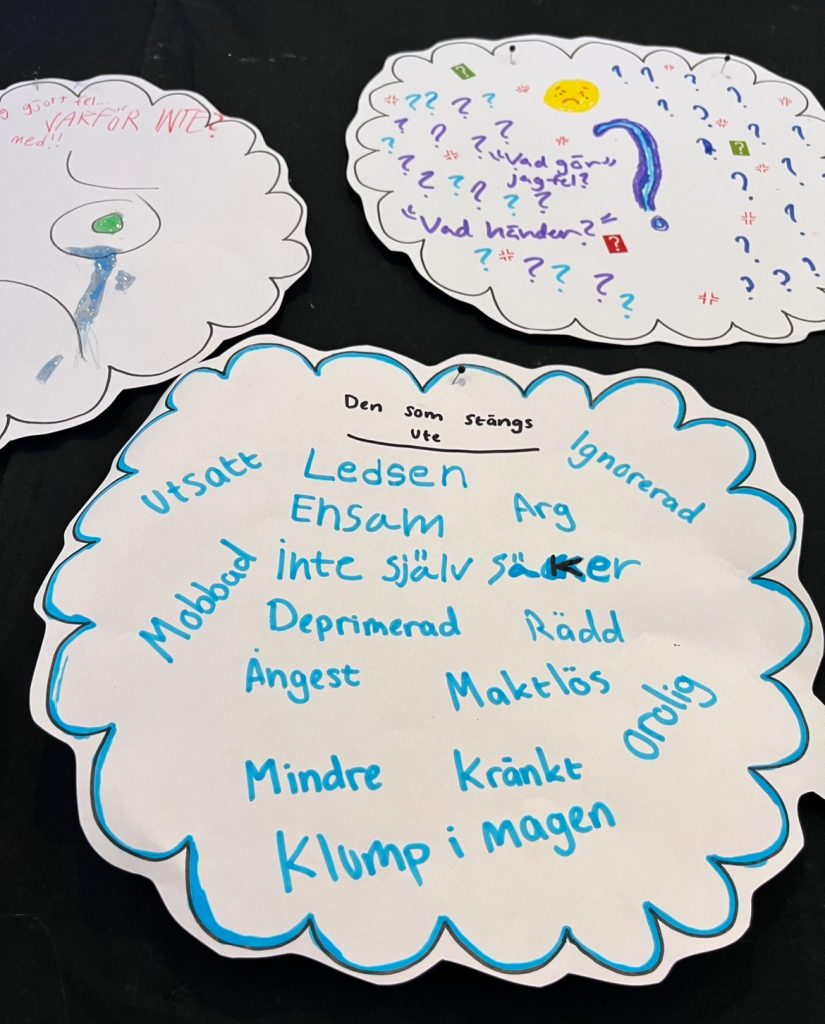 gjort fel...
VARFÖR INTE?
med!!
"Vad gör"
jag fel?
"Vad händer?"
Den som stängs
ute
Utsatt
Ledsen
Ignorerad
Ensam
Arg
inte själv säker
Mobbad
Deprimerad
Rädd
Ångest
Maktlös
Orolig
Mindre
Kränkt
Klump i magen